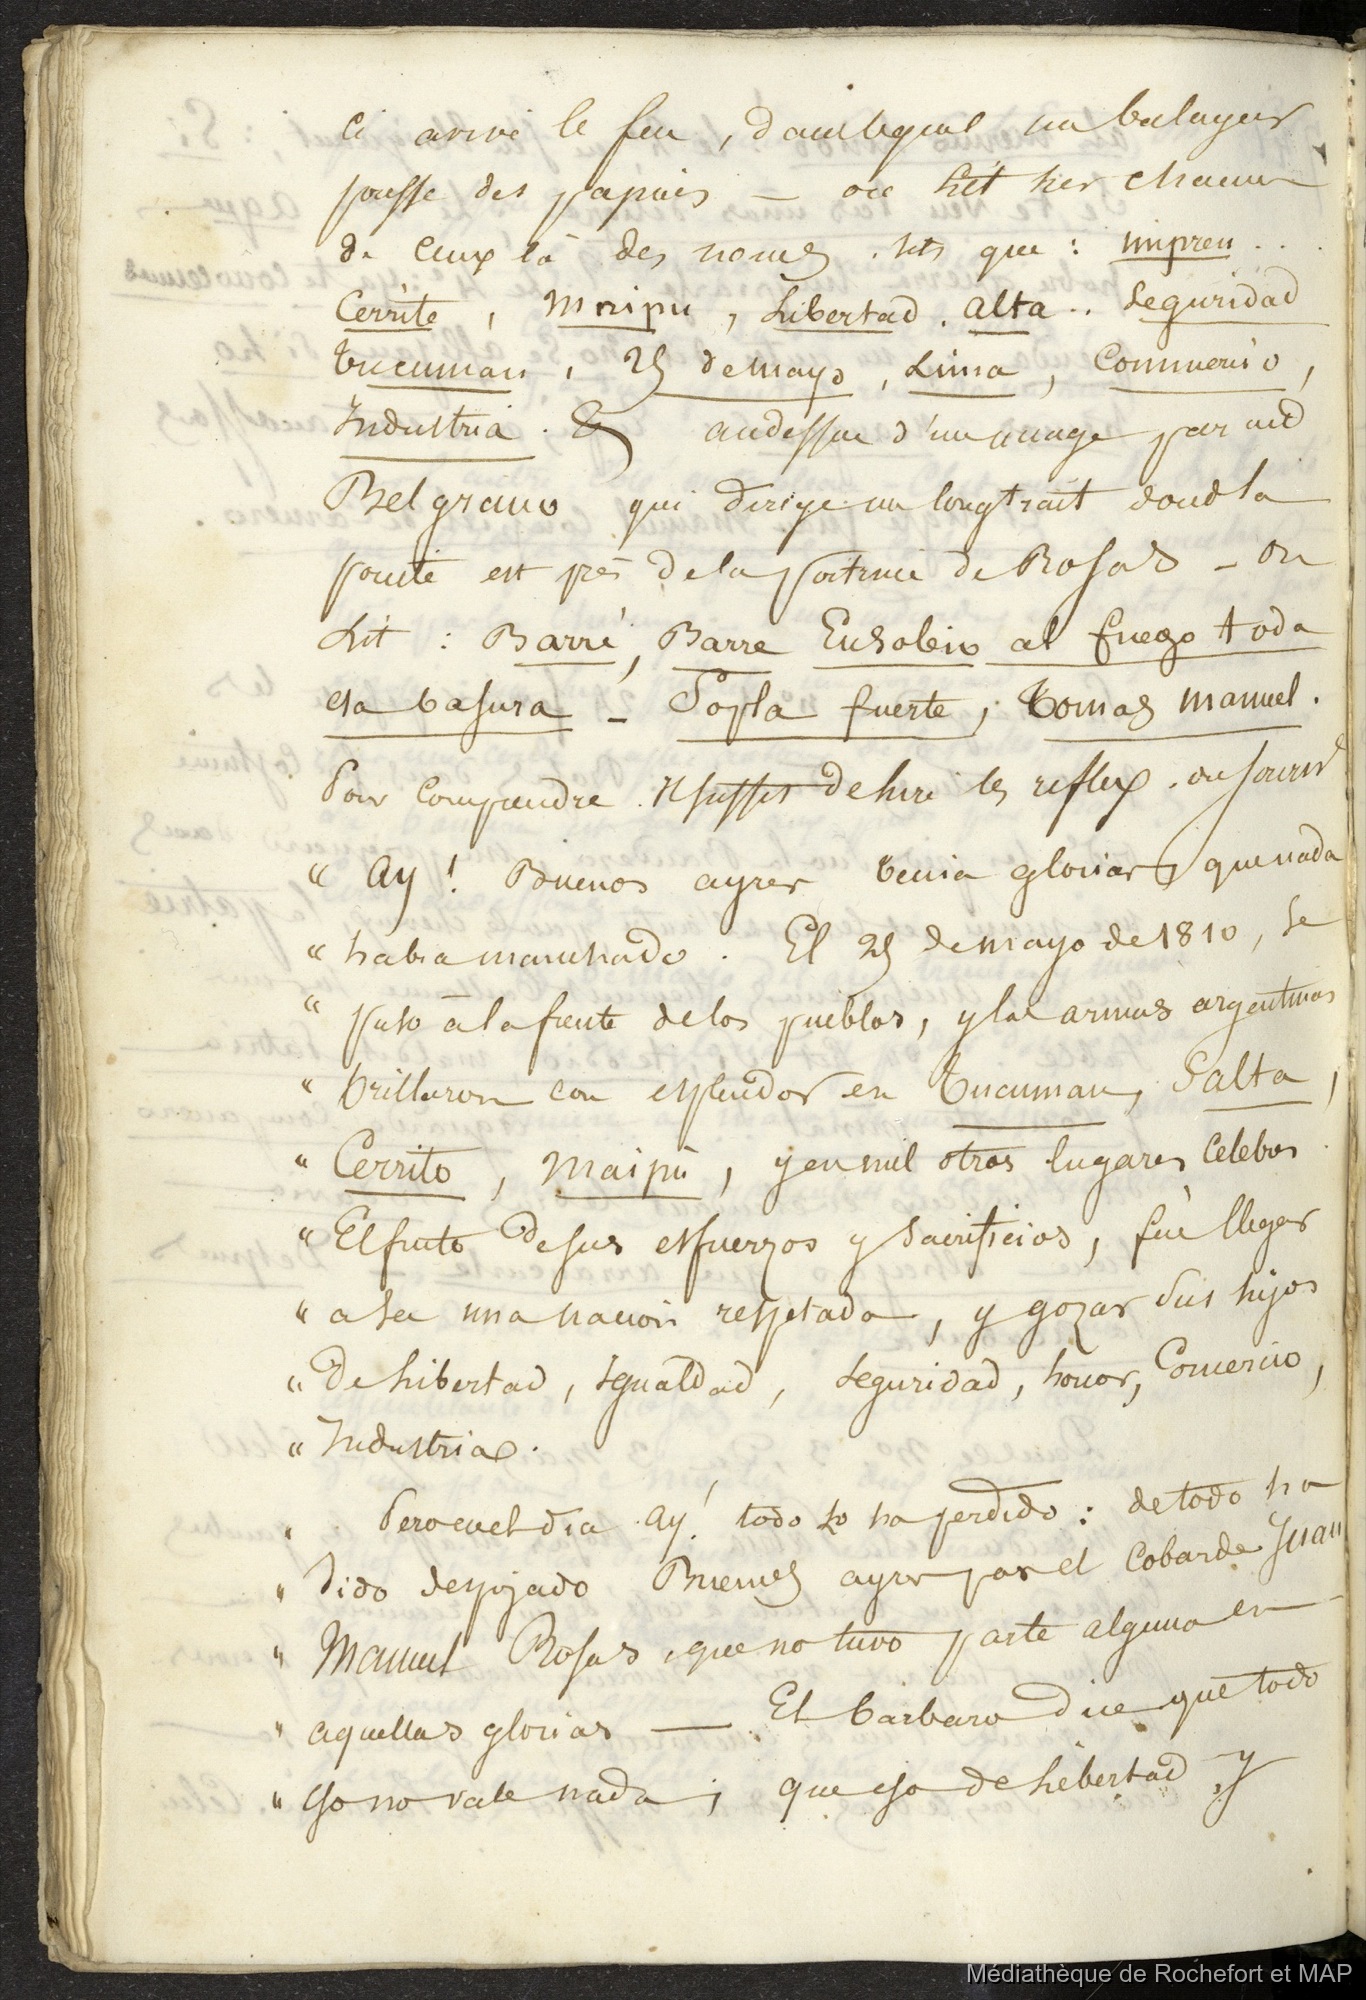 ci arrivé le feu, dans lequel un balayeur
pousse des papiers — on lit sur chacun
de ceux là des noms tels que : impren . .
Cerrite, Maipu, Libertad. alta .. Seguridad
Tucuman, 25 de mayo, Lima, Commercio,
Industria. & audessus d'un nuage paraid
Belgrano qui dirige un long trait dond la
pointe est près de la poitrine de Rosas — on
Lit : Barré, Barre Eusobio al fuego toda
esa basura — Sopla fuerte, Tomas manuel.
Pour comprendre il suffit de lire les reflex. ou
" Ay ! Buenos ayres tenia glorias que nada
" habia manchado. El 25 de mayo de 1810, se
" puso à la frente de los pueblos, y las armas argentinas
" brillaron con esplendor en Tucuman, Salta,
" Cerrito, Maipù, y en mil otros lugares celebres
" El fruto de sus esfuerzos y sacrificios, fuè llegar
" a ser una nacion respetada, y gozar sus hijos
" de libertad, igualdad, seguridad, honor, Comercio,
" Industria.
" Pero en el dia ay! todo lo ha perdido : de todo ha
" sido despojado Buenos ayres por el cobarde Juan
" Manuel Rosas, que no tuvo parte alguna en
" aquellas glorias — El barbaro dice que todo
" eso no vale nada ; que eso de libertad y
Médiathèque de Rochefort et MAP